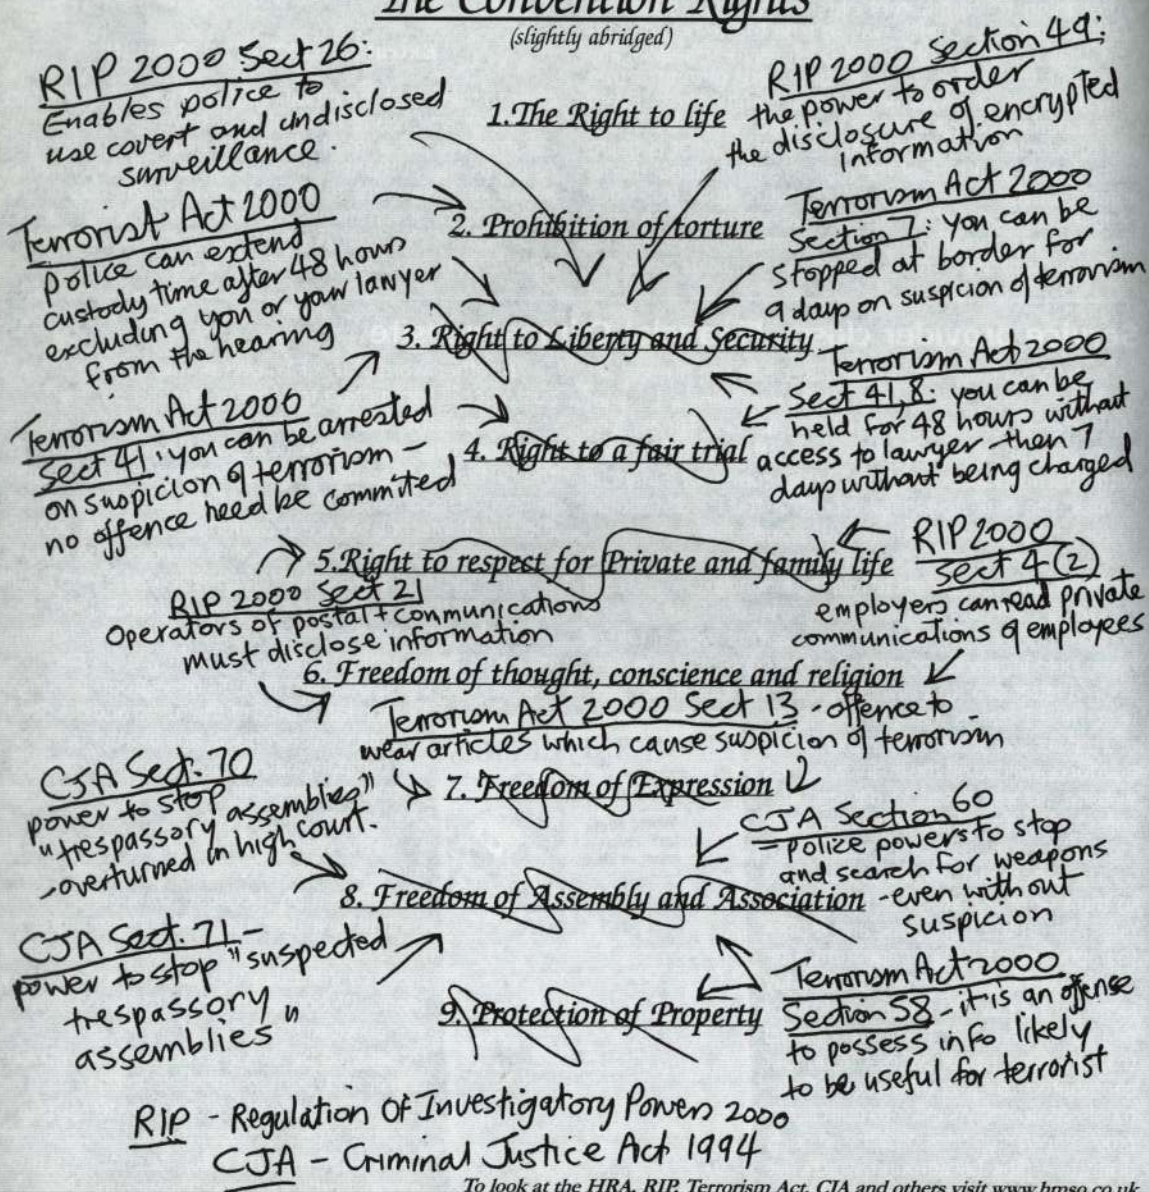 The Convention Rights
(slightly abridged)
RIP 2000 Sect 26:
Enables police to
use covert and undisclosed
surveillance.
1.The Right to life
RIP 2000 Section 49:
the power to order
the disclosure of encrypted
information
Terrorist Act 2000
Police can extend
custody time after 48 hours
excluding you or your lawyer
from the hearing
2. Prohibition of torture
Terrorism Act 2000
Section 7: you can be
stopped at border for
9 days on suspicion of terrorism
3. Right to Liberty and Security
Terrorism Act 2000
Sect 41,8: you can be
held for 48 hours without
access to lawyer - then 7
days without being charged
Terrorism Act 2000
Sect 41: you can be arrested
on suspicion of terrorism -
no offence need be commited
4. Right to a fair trial
5.Right to respect for Private and family life
RIP 2000
Sect 4 (2)
employers can read private
communications of employees
RIP 2000 Sect 21
Operators of postal + communications
must disclose information
6. Freedom of thought, conscience and religion
Terrorism Act 2000 Sect 13 - offence to
wear articles which cause suspicion of terrorism
7. Freedom of Expression
CJA Sect. 70
power to stop
"trespassory assemblies"
- overturned in high court.
CJA Section 60
- police powers to stop
and search for weapons
- even without
suspicion
8. Freedom of Assembly and Association
CJA Sect. 71 -
power to stop "suspected
trespassory
assemblies"
9. Protection of Property
Terrorism Act 2000
Section 58 - it is an offense
to possess info likely
to be useful for terrorist
RIP - Regulation Of Investigatory Powers 2000
CJA - Criminal Justice Act 1994
To look at the HRA, RIP, Terrorism Act, CJA and others visit www.hmso.co.uk